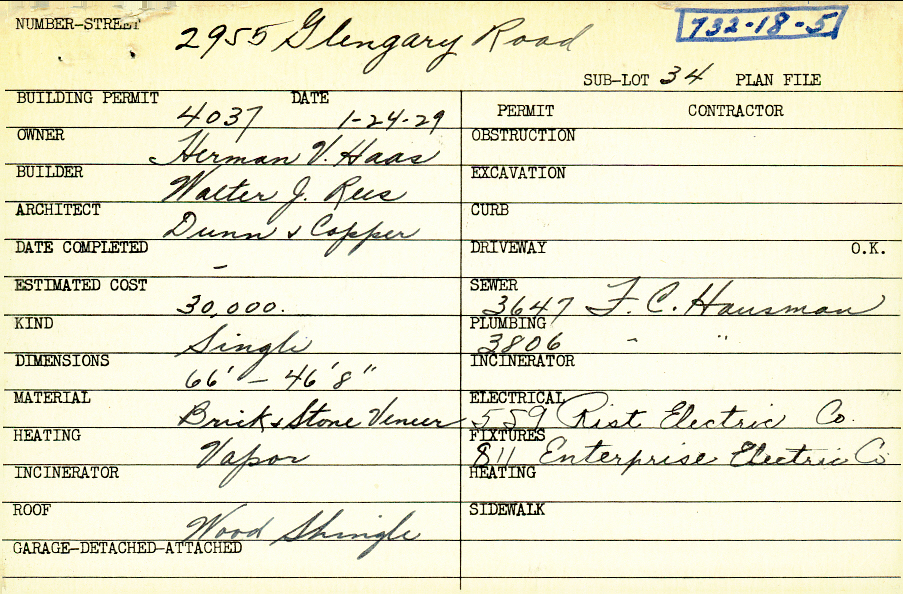 NUMBER-STREET 2955 Glengary Road 732-18-5
SUB-LOT 34 PLAN FILE
BUILDING PERMIT 4037 DATE 1-24-29
PERMIT CONTRACTOR
OWNER Herman V. Haas
OBSTRUCTION
BUILDER Walter J. Rees
EXCAVATION
ARCHITECT Dunn & Copper
CURB
DATE COMPLETED -
DRIVEWAY O.K.
ESTIMATED COST 30,000.
SEWER 3647 F. C. Hausman
KIND Single
PLUMBING 3806 " "
DIMENSIONS 66' - 46'8"
INCINERATOR
MATERIAL Brick & Stone Veneer
ELECTRICAL 559 Rist Electric Co.
HEATING Vapor
FIXTURES 811 Enterprise Electric Co
INCINERATOR
HEATING
ROOF Wood Shingle
SIDEWALK
GARAGE-DETACHED-ATTACHED